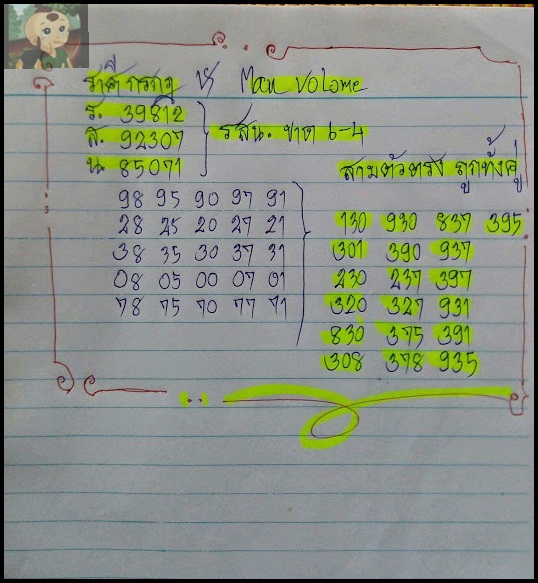 ราศีกรกฎ VS Man Volome
ร. 39812
ส. 92307
น. 85071
รสน. ขาด 6-4
สามตัวตรง ถูกทั้งคู่
98 95 90 97 91
28 25 20 27 21
38 35 30 37 31
08 05 00 07 01
78 75 70 77 71
130 930 837 395
301 390 937
230 237 397
320 327 931
830 375 391
308 378 935